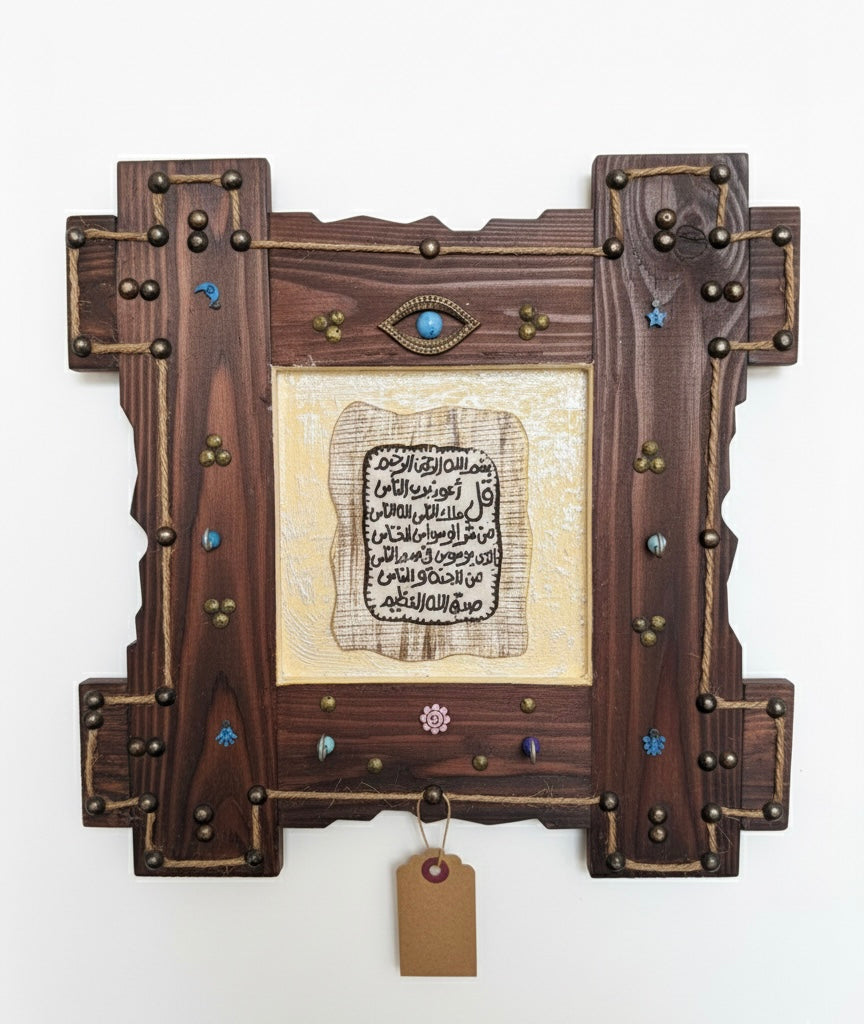 بسم الله الرحمن الرحيم
قل أعوذ برب الناس
ملك الناس اله الناس
من شر الوسواس الخناس
الذي يوسوس في صدور الناس
من الجنة و الناس
صدق الله العظيم